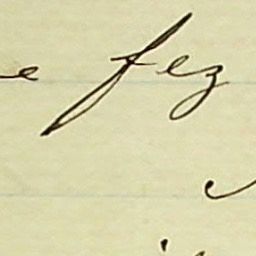 e fez